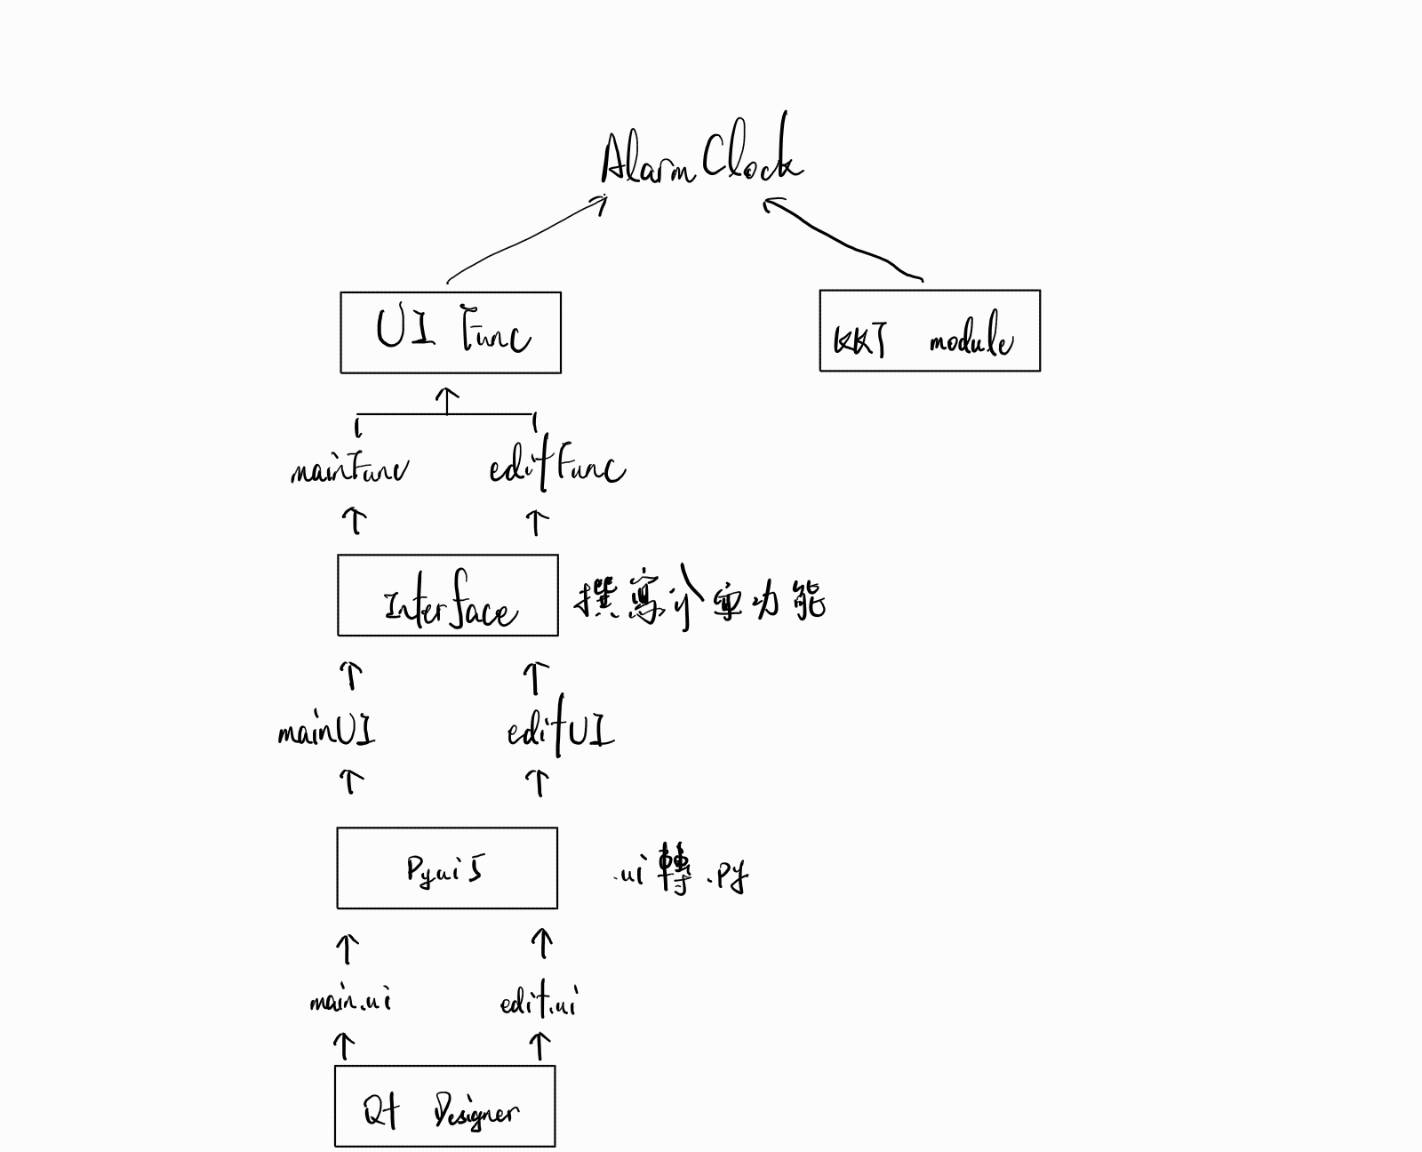 AlarmClock
UI Func
KKT module
mainFunc
editFunc
Interface
撰寫介面功能
mainUI
editUI
Pyui5
.ui轉.py
main.ui
edit.ui
Qt Designer